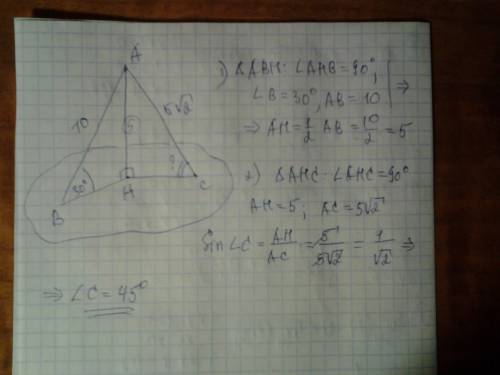 A
10
5√2
5
30°
?
B
H
C
1) ΔABH: ∠AHB = 90°;
∠B = 30°, AB = 10 | ⇒
⇒ AH = 1/2 AB = 10/2 = 5
2) ΔAHC: ∠AHC = 90°
AH = 5; AC = 5√2
Sin ∠C = AH/AC = 5/5√2 = 1/√2 ⇒
⇒ ∠C = 45°